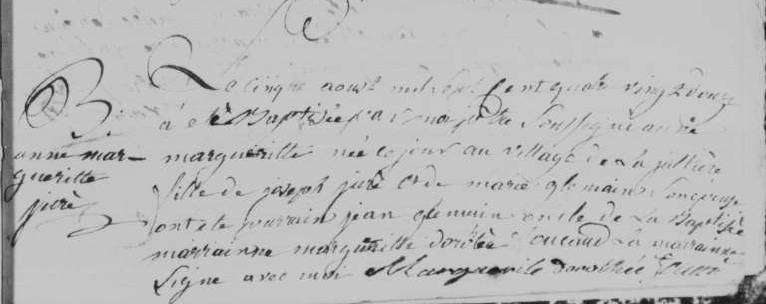 B.
anne mar-
gueritte
juré
Le cinque aoust mil sept cent quatre vingt douze
a été Baptisée par moy soussigné anne
margueritte née ce jour au village de la
fille de joseph juré et de marie glemain son epouse
ont été parrain jean glemain oncle de La Baptisée
marrainne margueritte dorotée La marainne
Signe avec moi Marguerite dorothée